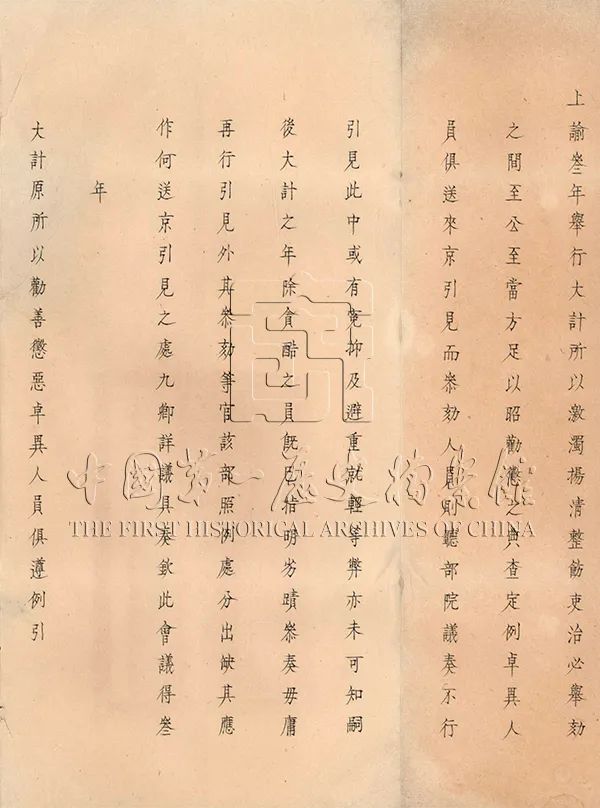 上諭叄年舉行大計所以激濁揚清整飭吏治必舉劾
之間至公至當方足以昭勸懲之典查定例卓異人
員俱送來京引見而叅劾人員則聽部院議奏不行
引見此中或有冤抑及避重就輕等弊亦未可知嗣
後大計之年除貪酷之員旣已指明劣蹟叅奏毋庸
再行引見外其叅劾等官該部照例處分出缺其應
作何送京引見之處九卿詳議具奏欽此會議得叄
年
大計原所以勸善懲惡卓異人員俱遵例引
中國第一歷史檔案館
THE FIRST HISTORICAL ARCHIVES OF CHINA